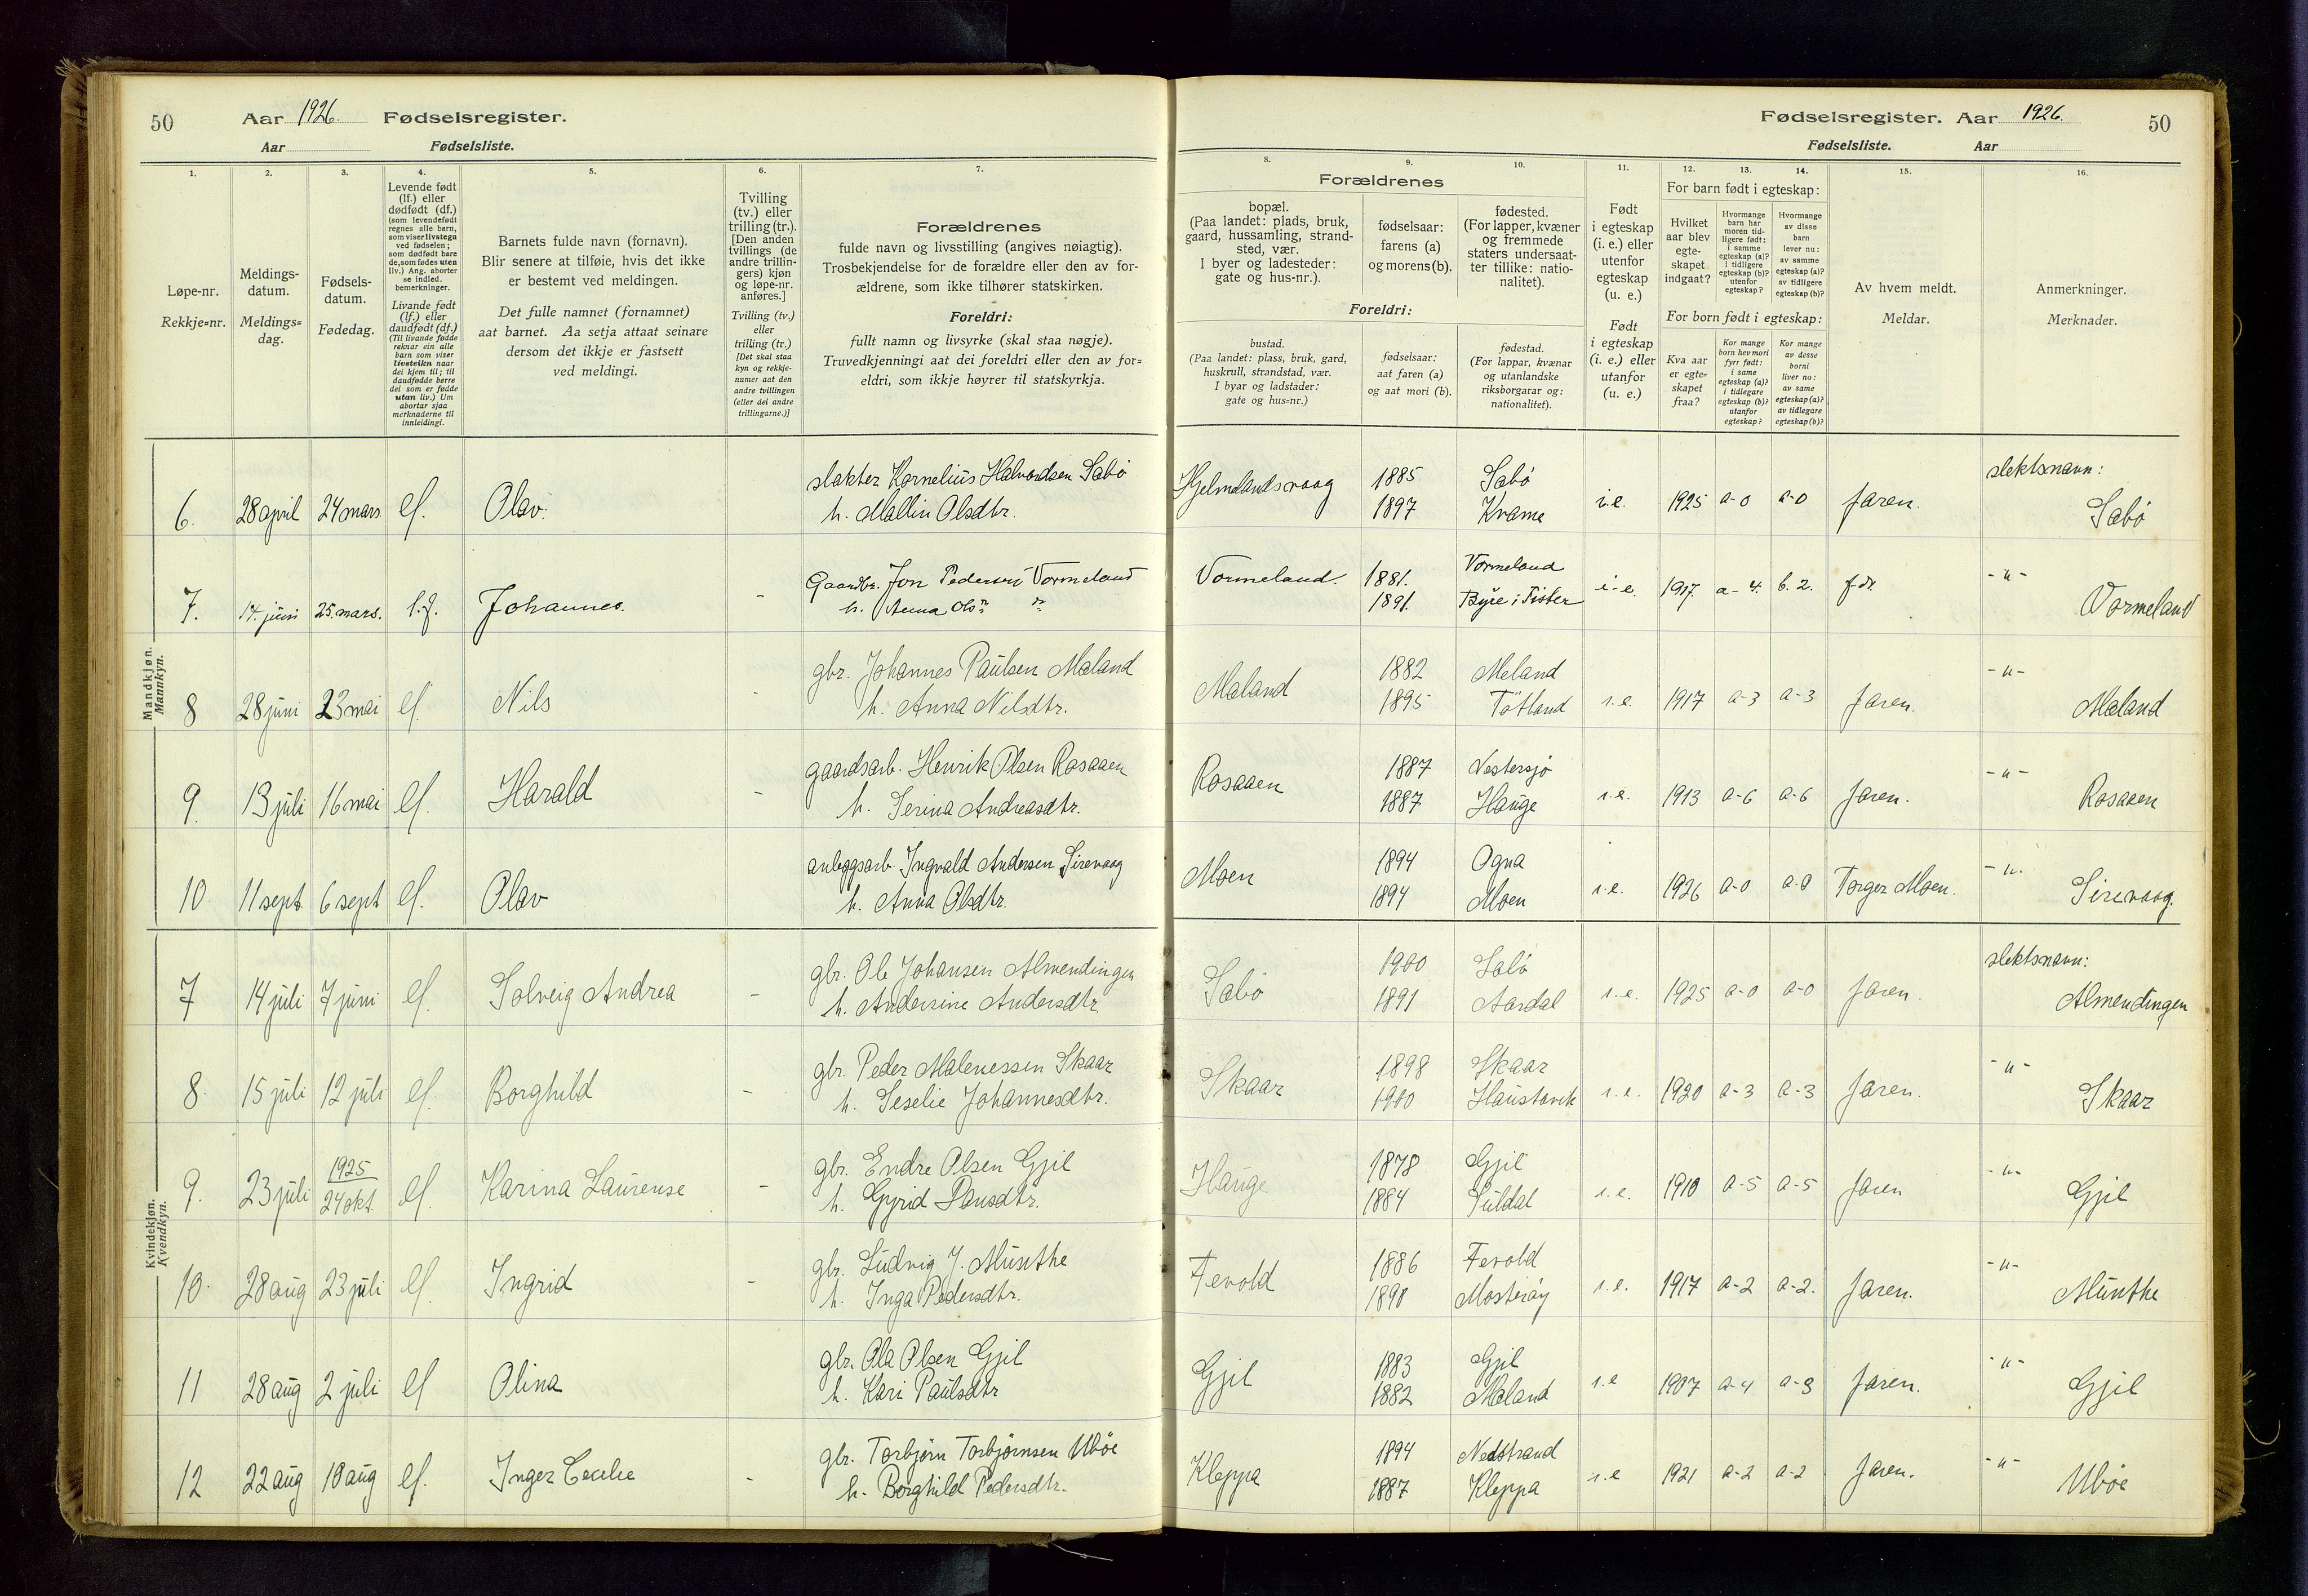 50 Aar 1926. Fødselsregister.
Aar Fødselsliste.
Fødselsregister. Aar 1926. 50
Fødselsliste. Aar
1. 2. 3. 4. 5. 6. 7.
Løpe-nr.
Rekkje=nr.
Meldings-
datum.
Meldings=
dag.
Fødsels-
datum.
Fødedag.
Levende født
(lf.) eller
dødfødt (df.)
(som levendefødt
regnes alle barn,
som viser livstegn
ved fødselen;
som dødfødt bare
de, som fødes uten
liv.) Ang. aborter
se indled.
bemerkninger.
Livande født
(lf.) eller
daudfødt (df.)
(Til livande fødde
reknar ein alle
barn som viser
livsteikn naar
dei kjem til; til
daudfødde berre
dei som er fødde
utan liv.) Um
abortar sjaa
merknaderne til
innleidingi.
Barnets fulde navn (fornavn).
Blir senere at tilføie, hvis det ikke
er bestemt ved meldingen.
Det fulle namnet (fornamnet)
aat barnet. Aa setja attaat seinare
dersom det ikkje er fastsett
ved meldingi.
Tvilling
(tv.) eller
trilling (tr.).
[Den anden
tvillings (de
andre trillin-
gers) kjøn
og løpe-nr.
anføres.]
Tvilling (tv.)
eller
trilling (tr.)
[Det skal staa
kyn og rekkje-
numer aat den
andre tvillingen
(eller dei andre
trillingarne.)]
Forældrenes
fulde navn og livsstilling (angives nøiagtig).
Trosbekjendelse for de forældre eller den av for-
ældrene, som ikke tilhører statskirken.
Foreldri:
fullt namn og livsyrke (skal staa nøgje).
Truvedkjenningi aat dei foreldri eller den av for=
eldri, som ikkje høyrer til statskyrkja.
8. 9. 10. 11. 12. 13. 14. 15. 16.
Forældrenes
bopæl.
(Paa landet: plads, bruk,
gaard, hussamling, strand-
sted, vær.
I byer og ladesteder:
gate og hus-nr.).
fødselsaar:
farens (a)
og morens (b).
fødested.
(For lapper, kvæner
og fremmede
staters undersaat-
ter tillike: natio-
nalitet).
Foreldri:
bustad.
(Paa landet: plass, bruk, gard,
huskrull, strandstad, vær.
I byar og ladstader:
gate og hus=nr.)
fødselsaar:
aat faren (a)
og aat mori (b).
fødestad.
(For lappar, kvænar
og utanlandske
riksborgarar og:
nationalitet).
Født
i egteskap
(i. e.) eller
utenfor
egteskap
(u. e.)
Født
i egteskap
(i. e.) eller
utanfor
(u. e.)
For barn født i egteskap:
Hvilket
aar blev
egte-
skapet
indgaat?
Hvormange
barn har
moren tid-
ligere født:
i samme
egteskap (a)?
i tidligere
egteskap (b)?
utenfor
egteskap?
Hvormange
av disse
barn
lever nu:
av samme
egteskap (a)?
av tidligere
egteskap (b)?
For born født i egteskap:
Kva aar
er egte=
skapet
fraa?
Kor mange
born hev mori
fyrr født:
i same
egteskap (a)?
i tidlegare
egteskap (b)?
utanfor
egteskap?
Kor mange
av desse
borni
liver no:
av same
egteskap (a)?
av tidlegare
egteskap (b)?
Av hvem meldt.
Meldar.
Anmerkninger.
Merknader.
Mandkjøn.
Mannkyn.
6. 28 april 24 mars lf. Olav. slakter Kornelius Halvordsen Sabø
h. Mallin Olsdtr.
Hjelmelandsvaag 1885 Sabø
1897 Kvame i.e. 1925 a-0 a-0 faren. slektsnavn: Sabø
7. 14. juni 25. mars. l.f. Johannes. - Gaardbr. Jon Pedersen Vormeland
h. Anna Ols
Vormeland. 1881. Vormeland
1891. Byre i Fister i-e. 1917 a-4. b. 2. -"- Vormeland
8 28 juni 23 mai lf. Nils - gbr. Johannes Paulsen Mæland
h. Anna Nilsdtr.
Mæland 1882 Meland
1895 Tøtland i.e. 1917 a-3 a-3 faren. -"- Mæland
9. 13 juli 16 mai lf. Harald - gaardsarb. Henrik Olsen Rosaaen
h. Serina Andreasdtr.
Rosaaen 1887 Vestersjø
1887 Hauge i.e. 1913 a-6 a-6 faren. -"- Rosaaen
10. 11 sept. 6 sept lf. Olav anleggsarb. Ingvald Andersen Sirevaag
h. Anna Olsdtr.
Moen 1894 Ogna
1894 Moen i.e. 1926 a-0 a-0 Torger Moen. -"- Sirevaag.
Kvindekjøn.
Kvendkyn.
7 14 juli 7 juni lf. Solveig Andrea - gbr. Ole Johansen Almendingen
h. Andersine Andersdtr.
Sabø 1900 Sabø
1891 Aardal i.e. 1925 a-0 a-0 faren. slektsnavn: Almendingen
8. 15 juli 12 juli lf. Borghild - gbr. Peder Malenessen Skaar
h. Seselie Johannesdtr.
Skaar 1898 Skaar
1900 Haustavik i.e. 1920 a-3 a-3 faren. -"- Skaar
9. 23 juli 1925 24 okt. lf. Karina Laurense - gbr. Endre Olsen Gjil
h. Gyrid
Hauge 1878 Gjil
1884 Suldal i.e. 1910 a-5 a-5 faren -"- Gjil
10. 28 aug 23 juli lf. Ingrid - gbr. Ludvig J. Munthe
h. Inga Pedersdtr.
Fevold 1886 Fevold
1890 Mosterøy i.e. 1917 a-2 a-2. faren. -"- Munthe
11 28 aug 2 juli lf Olina gbr. Ola Olsen Gjil
h. Kari Paulsdtr
Gjil 1883 Gjil
1882 Mæland i.e 1907 a-4 a-3 faren. -"- Gjil
12 22 aug 10 aug lf. Inger Cecilie - gbr. Torbjørn Torbjørnsen Ubøe
h. Borghild Pedersdtr.
Kleppa 1894 Nedstrand
1887 Kleppa i.e 1921 a-2 a-2 faren. -"- Ubøe